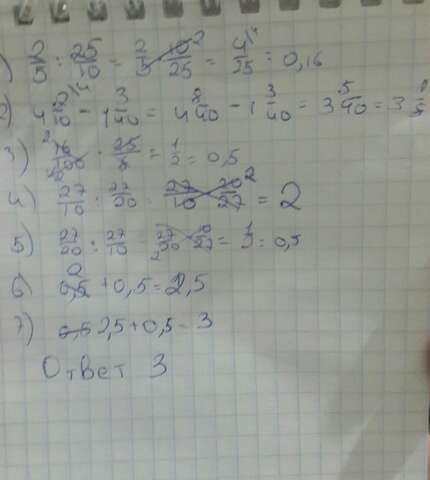 ) 2/5 : 25/10 = 2/5 · 10/25 = 4/25 = 0,16
2) 4 2/10 - 1 3/40 = 4 8/40 - 1 3/40 = 3 5/40 = 3
3) · 25/ = 1/2 = 0,5
4) 27/10 : 27/20 = 27/10 · 20/27 = 2
5) 27/20 : 27/10 = 27/20 · 10/27 = 1/2 = 0,5
6) 2 + 0,5 = 2,5
7) 2,5 + 0,5 = 3
Ответ 3